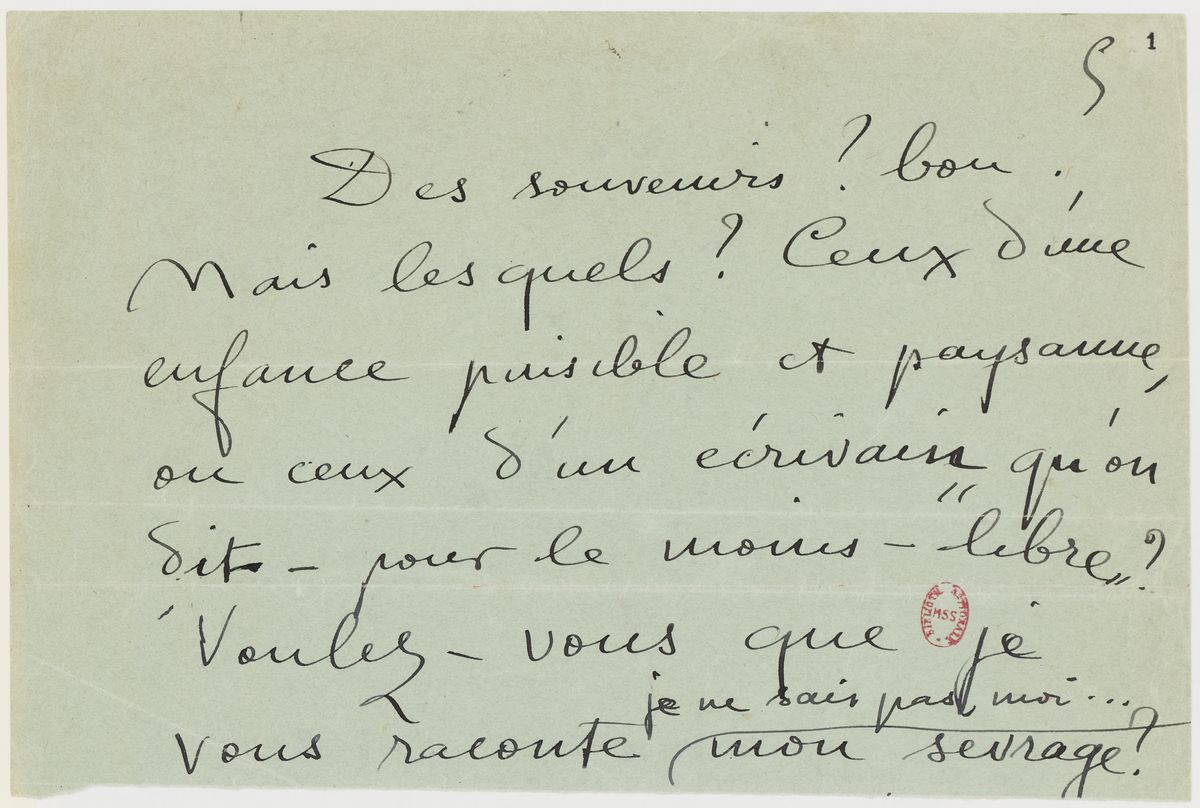 1
5
Des souvenirs ? bon.
Mais lesquels ? Ceux d'une
enfance paisible et paysanne,
ou ceux d'un écrivain qu'on
dit - pour le moins - "libre" ?
Voulez-vous que je
je ne sais pas, moi...
vous raconte mon sevrage ?
MSS